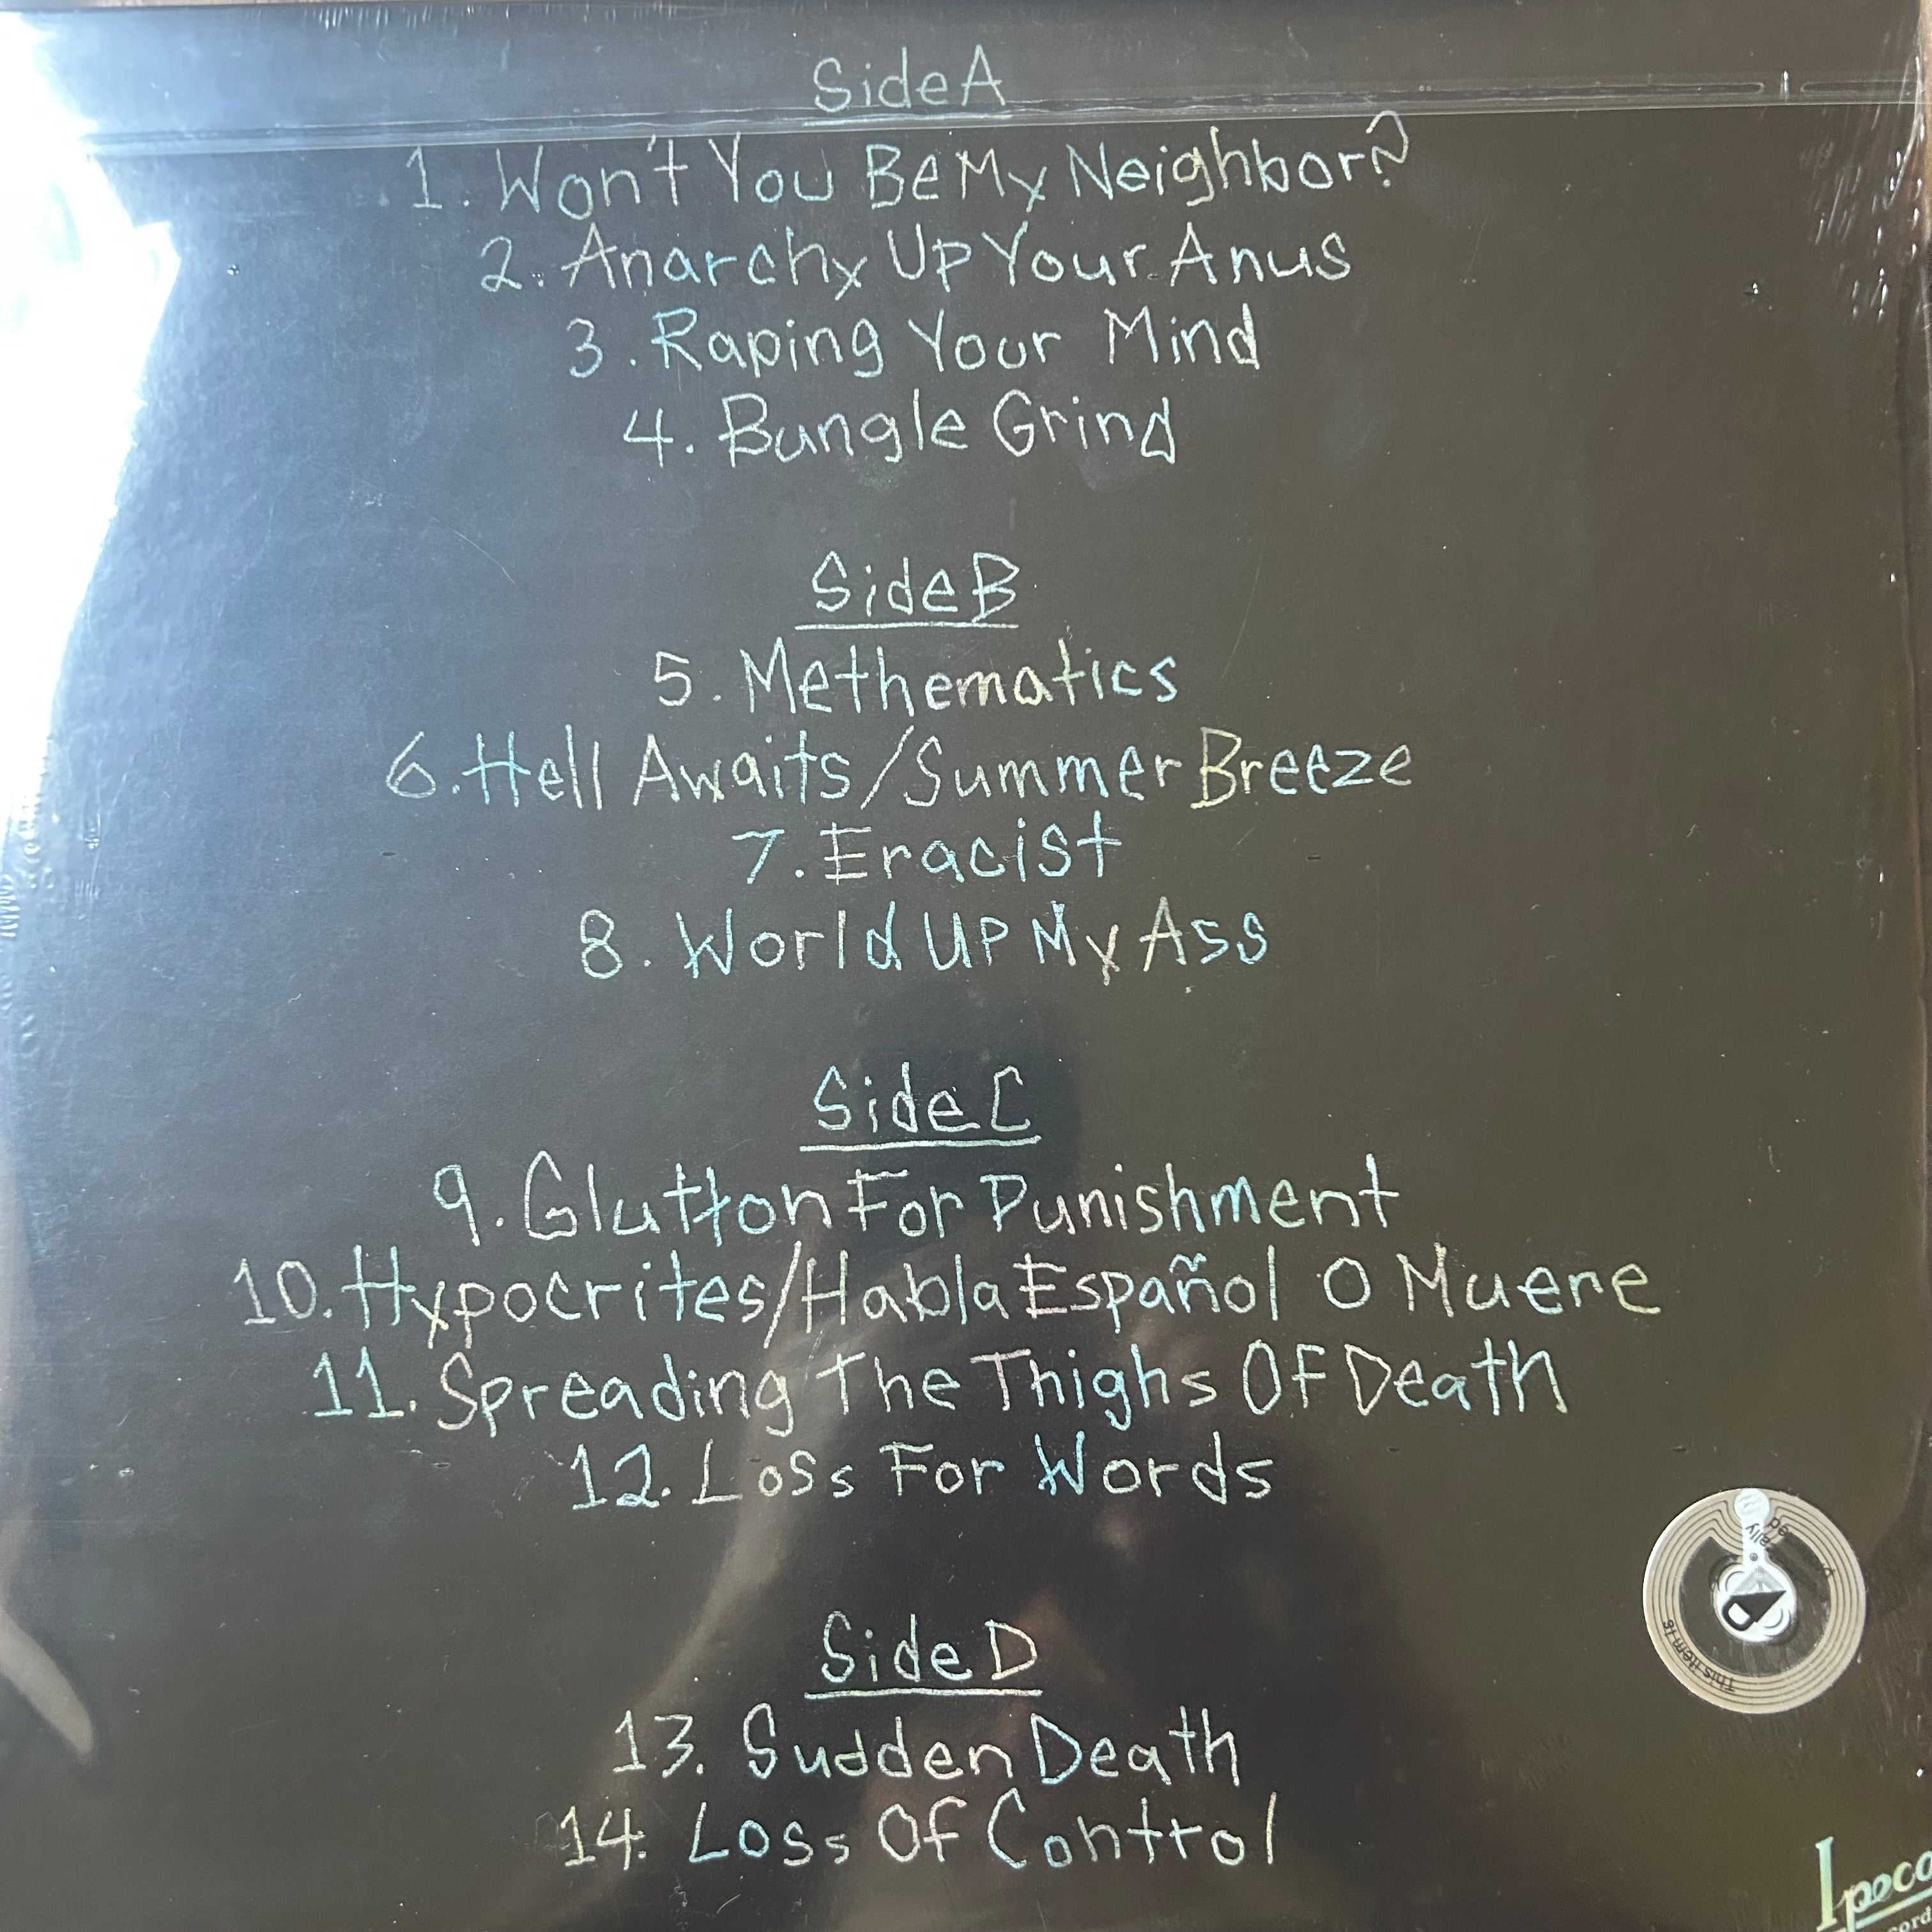 Side A
1. Won't You Be My Neighbor?
2. Anarchy Up Your Anus
3. Raping Your Mind
4. Bungle Grind
Side B
5. Methematics
6. Hell Awaits/Summer Breeze
7. Eracist
8. World Up My Ass
Side C
9. Glutton For Punishment
10. Hypocrites/Habla Español O Muere
11. Spreading The Thighs Of Death
12. Loss For Words
Side D
13. Sudden Death
14. Loss Of Control
This item is